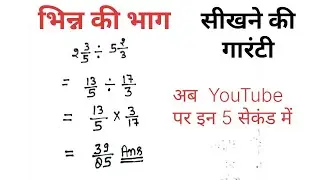 भिन्न की भाग
सीखने की
गारंटी
2 3/5 ÷ 5 2/3
= 13/5 ÷ 17/3
= 13/5 × 3/17
= 39/85 Ans
अब YouTube
पर इन 5 सेकंड में